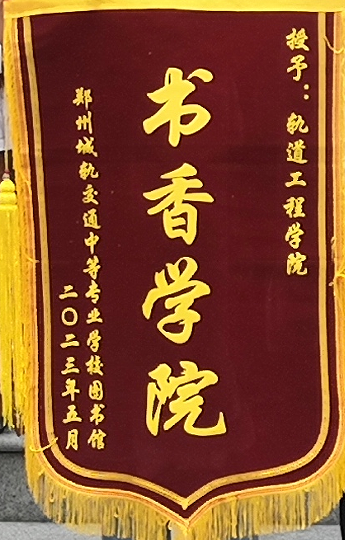 授予：轨道工程学院
书香学院
郑州城轨交通中等专业学校图书馆
二〇二三年五月